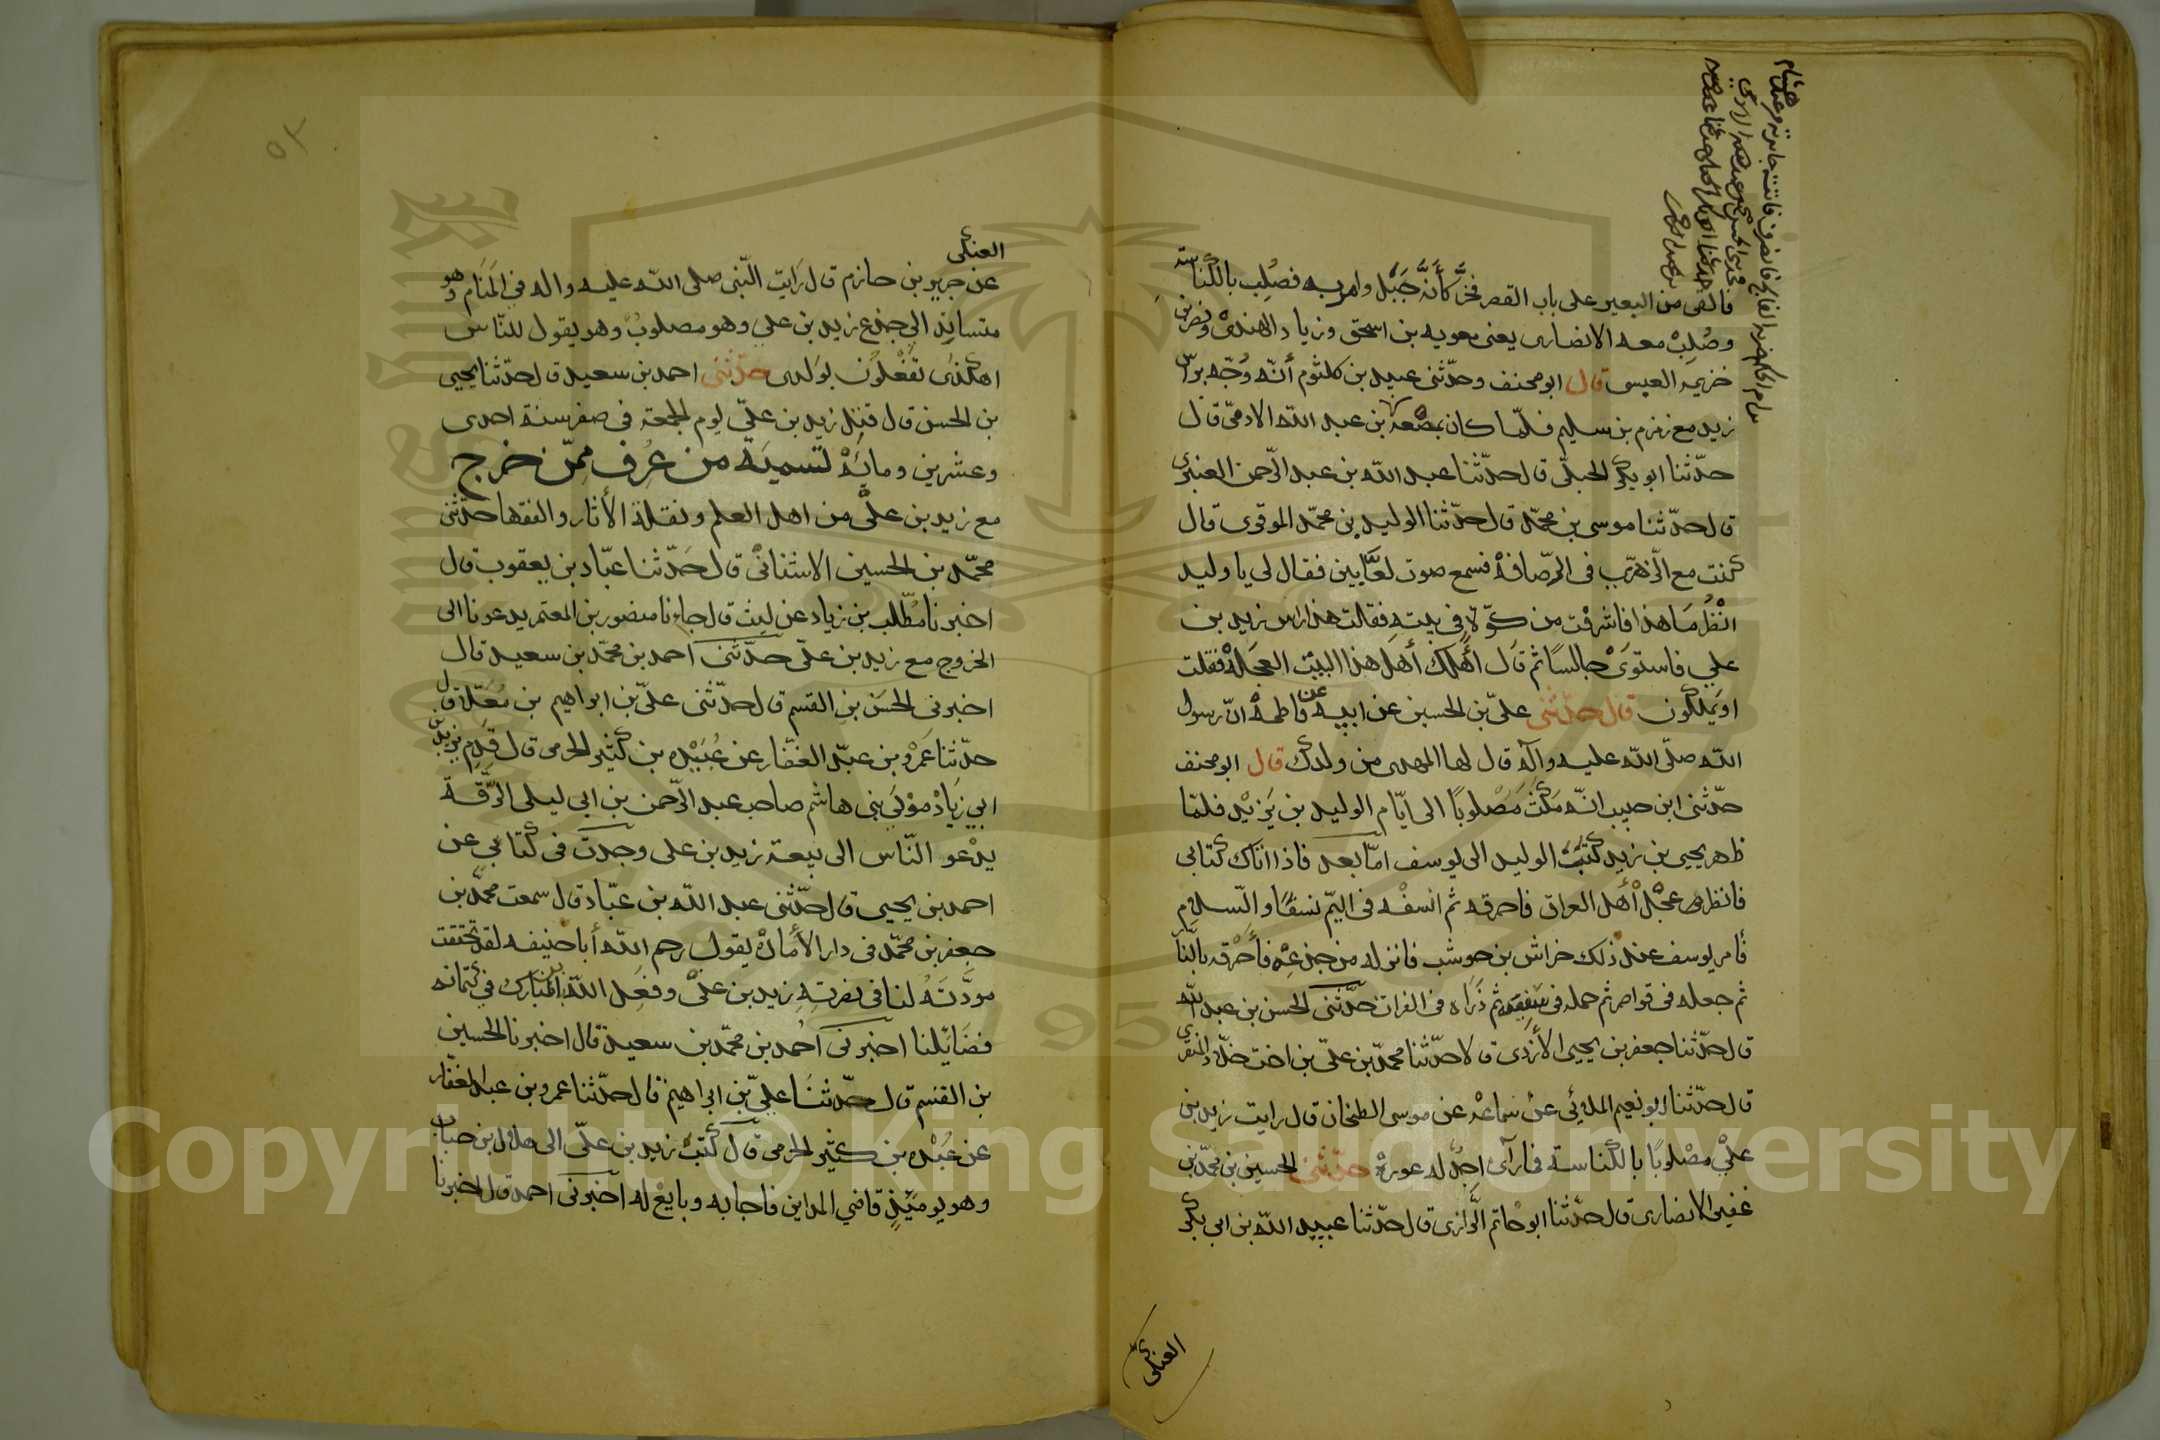 فالقى من البعير على باب القصر فخرَّ كأنَّه جَبَل وامر به فصُلِب بالكُناسة
وصُلِبَ معه الانصارى يعنى معويه بن اسحق وزياد الهندىّ ونصر بن
خزيمه العبسى قال ابو مخنف وحدّثنى عبيد بن كلثوم أنّه وُجّه براس
زيد مع زمزم بن سليم فلمّا كان بمضْيعة بن عبد الله الادمىّ قال
حدّثنا ابو بكر الجبلّى قال حدّثنا عبد الله بن عبد الرّحمن العنبرى
قال حدّثنا موسى بن محمّد قال حدّثنا الوليد بن محمّد الموقرى قال
كنت مع الزّهرّى فى الرّصافة فسمع صوت لعّابين فقال لى يا وليد
انْظُر مَا هذا فاشرفت من كوّة فى بيته فقلت هذا راس زيد بن
علي فاستوَىْ جالسًا ثم قال أهلك أهل هذا البيْت العجلةُ فقلت
اوَيملكون قال حدّثنى علىّ بن الحسين عن ابيه عن فاطمة انّ رسول
الله صلّى الله عليه وآله قال لها المهدى من ولدك قال ابو مخنف
حدّثنى ابن حبيب انّه مَكَثَ مَصْلوبًا الى ايّام الوليد بن يَزيْد فلمّا
ظهر يحيى بن زيد كتَبَ الوليد الى يوسف امّا بعد فاذا اتاك كتابى
فانظر عجْل أهْل العراق فاحرقه ثم انسفْه فى اليّم نسفًا والسّلام
فأمر يوسف عند ذلك خراش بن حوشب فانزله من جذعِه فأحْرقه بالنّار
ثم جعله فى قواصر ثم حمله فى سَفِينة ثم ذَرَاه فى الفرات حدّثنى الحسن بن عبد الله
قال حدّثنا جعفر بن يحيى الأزدى قالا حدّثنا محمّد بن علىّ بن اخت خلّاد المنقرى
قال حدّثنا ابو نعيم الملائي عنْ سَماعة عن موسى الطحّان قال رايت زيد بن
علىّ مصْلوبًا بالكناسة فما رآى احدٌ له عورة حدّثنى الحسين بن محمّد بن
عفير الانصارى قال حدّثنا ابو حاتم الرّازى قال حدّثنا عبيد الله بن ابى بكر
العتكى
العتكى
عن جرير بن حازم قال رَايت النّبى صلى الله عليه واله فى المَنَام وهو
متساند الى جذع زيد بن على وهو مصلوبٌ وهو يقول للنّاس
اهكذى تفعلُون بوَلدى حدّثنى احمد بن سعيد قال حدّثنا يحيى
بن الحسن قال قتل زيد بن علىّ يوم الجمعة فى صفر سنة احدى
وعشرين ومائة تسمية من عُرف ممّن خرج
مع زيد بن علىّ من اهل العلم ونقلة الأثار والفقها حدّثنى
محمّد بن الحسين الاشنانىّ قال حَدّثنا عبّاد بن يعقوب قال
اخبرنا مُطّلب بن زياد عن ليث قال جاءنا منصور بن المعتمر يدعونا الى
الخروج مع زيد بن علىّ حدّثنى احمد بن محمّد بن سعيد قال
اخبرنى الحسَن بن القسم قال حدّثنى علىّ بن ابراهيم بن مُعَلّى قال
حدّثنا عَمرْو بن عبْد الغفّار عن عُبَيْده بن كثير الجرمى قال قَدِم يزيد بن
ابى زِيَادْ موْلَى بنى هاشم صاحب عبد الرّحمن بن ابى ليلى الرّقّة
يدْعو النّاس الى بيعة زيد بن على وجدت فى كتابى عن
احمد بن يحيى قال حدّثنى عبد الله بن عبّاد قال سمعت محمّد بن
جعفر بن محمّد فى دار الأمارة يقول رحم الله أبا حنيفه لقد تحققت
مودَّتَهُ لنا فى نصرته زيد بن علىّ وفعل الله بابن المبارك فى كتمانه
فضائلنا اخبرنى احْمد بن محمّد بن سعيد قال اخبرنا الحسين
بن القسَم قال حدّثنَا علىّ بن ابراهيم قال حدّثنا عمرو بن عبد الغفّار
عن عُبْده بن كثير الجرمى قال كتَب زيد بن علىّ الى هلال بن حباب
وهو يومَئِذٍ قاضي المداين فاجابه وبايعْ له اخبرنى احمد قال اخبرنا
Copyright © King Saud University